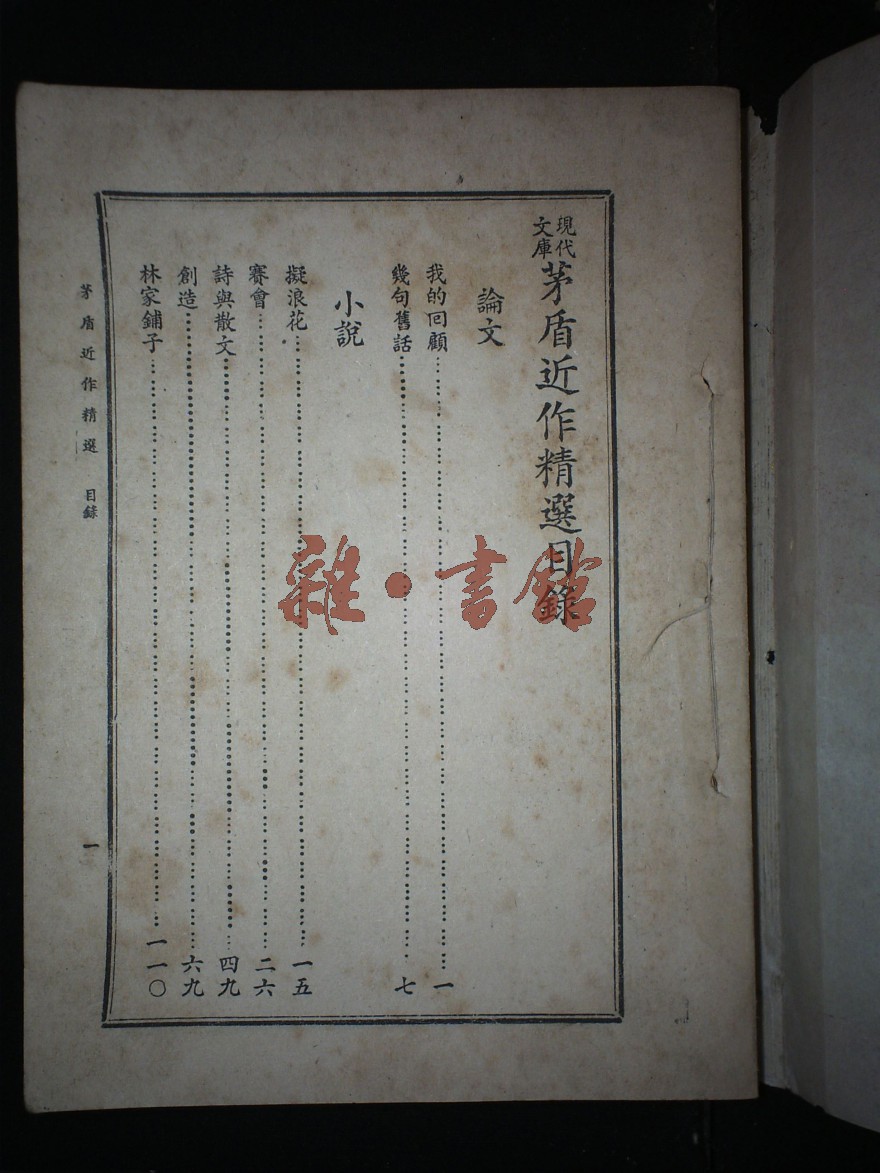 現代文庫茅盾近作精選目錄
論文
我的回顧…………一
幾句舊話…………七
小說
擬浪花…………一五
賽會…………二六
詩與散文…………四九
創造…………六九
林家鋪子…………一一〇
茅盾近作精選 目錄 一
雜·書館